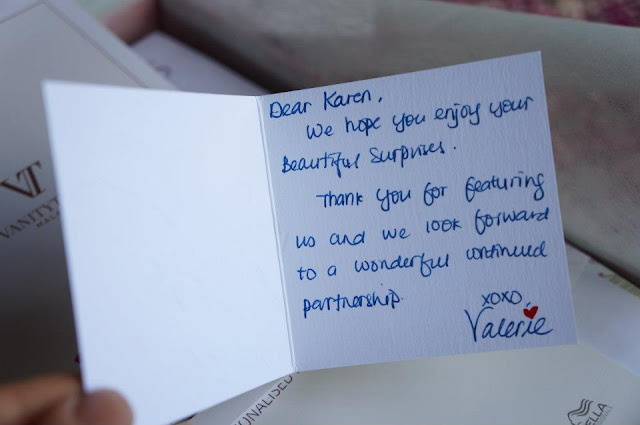 Dear Karen,
We hope you enjoy your
Beautiful Surprises.
Thank you for featuring
us and we look forward
to a wonderful continued
partnership.
xoxo,
Valerie
VT